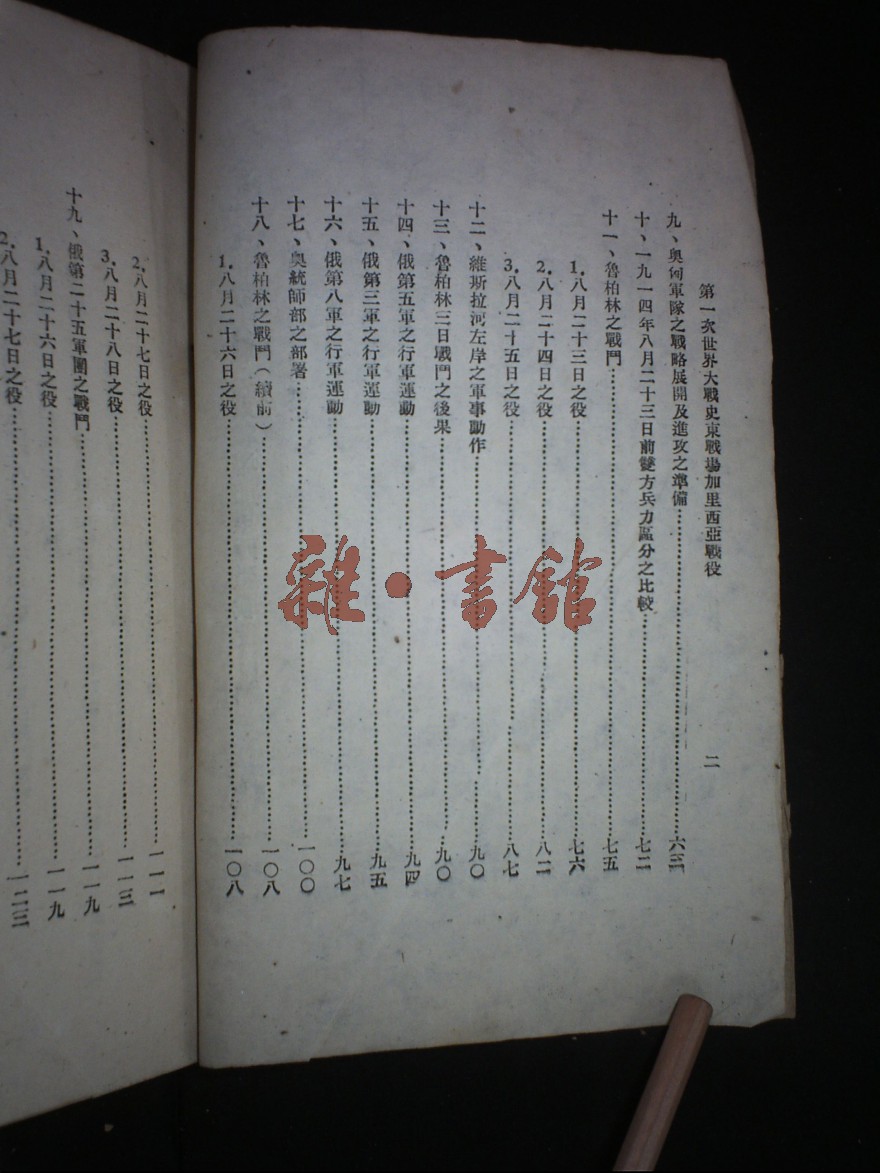 第一次世界大戰史東戰場加里西亞戰役
二
九、奥匈軍隊之戰略展開及進攻之準備……六三
十、一九一四年八月二十三日前雙方兵力區分之比較……七二
十一、魯柏林之戰鬥……七五
1.八月二十三日之役……七六
2.八月二十四日之役……八二
3.八月二十五日之役……八七
十二、維斯拉河左岸之軍事動作……九〇
十三、魯柏林三日戰鬥之後果……九〇
十四、俄第五軍之行軍運動……九四
十五、俄第三軍之行軍運動……九五
十六、俄第八軍之行軍運動……九七
十七、奥統師部之部署……一〇〇
十八、魯柏林之戰鬥（續前）……一〇八
1.八月二十六日之役……一〇八
2.八月二十七日之役……一一一
3.八月二十八日之役……一一三
十九、俄第二十五軍團之戰鬥……一一九
1.八月二十六日之役……一一九
2.八月二十七日之役……一二三
雜·書館